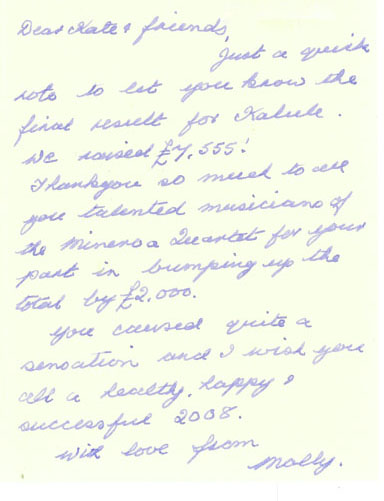 Dear Kate & friends,
Just a quick
note to let you know the
final result for Kabule.
We raised £7,555!
Thankyou so much to all
you talented musicians of
the Minerva Quartet for your
part in bumping up the
total by £2,000.
You caused quite a
sensation and I wish you
all a healthy, happy &
successful 2008.
With love from
Molly.